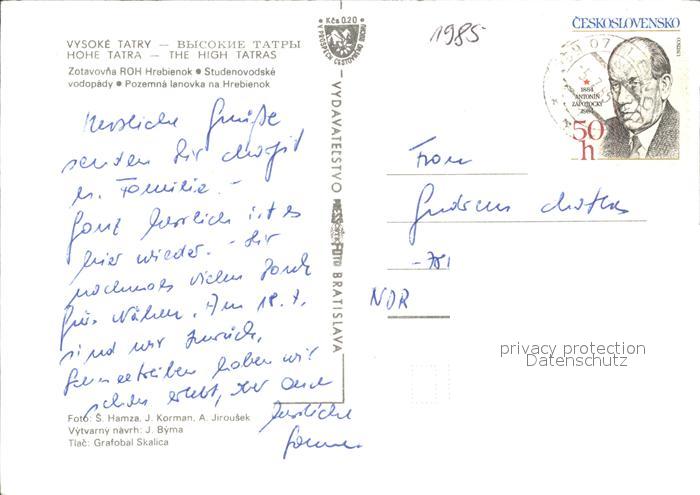 VYSOKÉ TATRY — ВЫСОКИЕ ТАТРЫ
HOHE TATRA — THE HIGH TATRAS
Zotavovňa ROH Hrebienok ● Studenovodské
vodopády ● Pozemná lanovka na Hrebienok
Kčs 0.20
V PROSPECH CESTOVNÉHO RUCHU
1985
ČESKOSLOVENSKO
1884
ANTONÍN
ZÁPOTOCKÝ
1984
50
h
Herzliche Grüße
senden Dir
u. Familie. –
Ganz herrlich ist es
hier wieder. – Dir
nochmals vielen Dank
fürs Nähen. Am 18. 7.
sind wir zurück.
haben wir
schon erlebt, aber auch
herrliche
Sonne.
VYDAVATEĽSTVO BRATISLAVA
Frau
Gudrun
- 781
privacy protection
Datenschutz
Foto: Š. Hamza, J. Korman, A. Jiroušek
Výtvarný návrh: J. Býma
Tlač: Grafobal Skalica